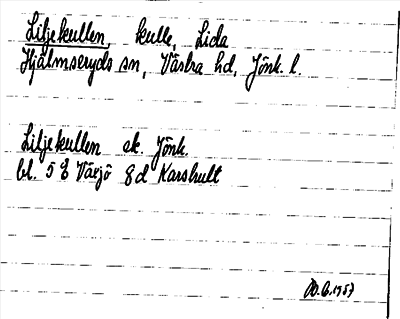 Liljekullen, kulle, Lida
Hjälmseryds sn, Västra hd, Jönk. l.
Liljekullen ek. Jönk.
bl. 5 E Värjö 8d Karshult